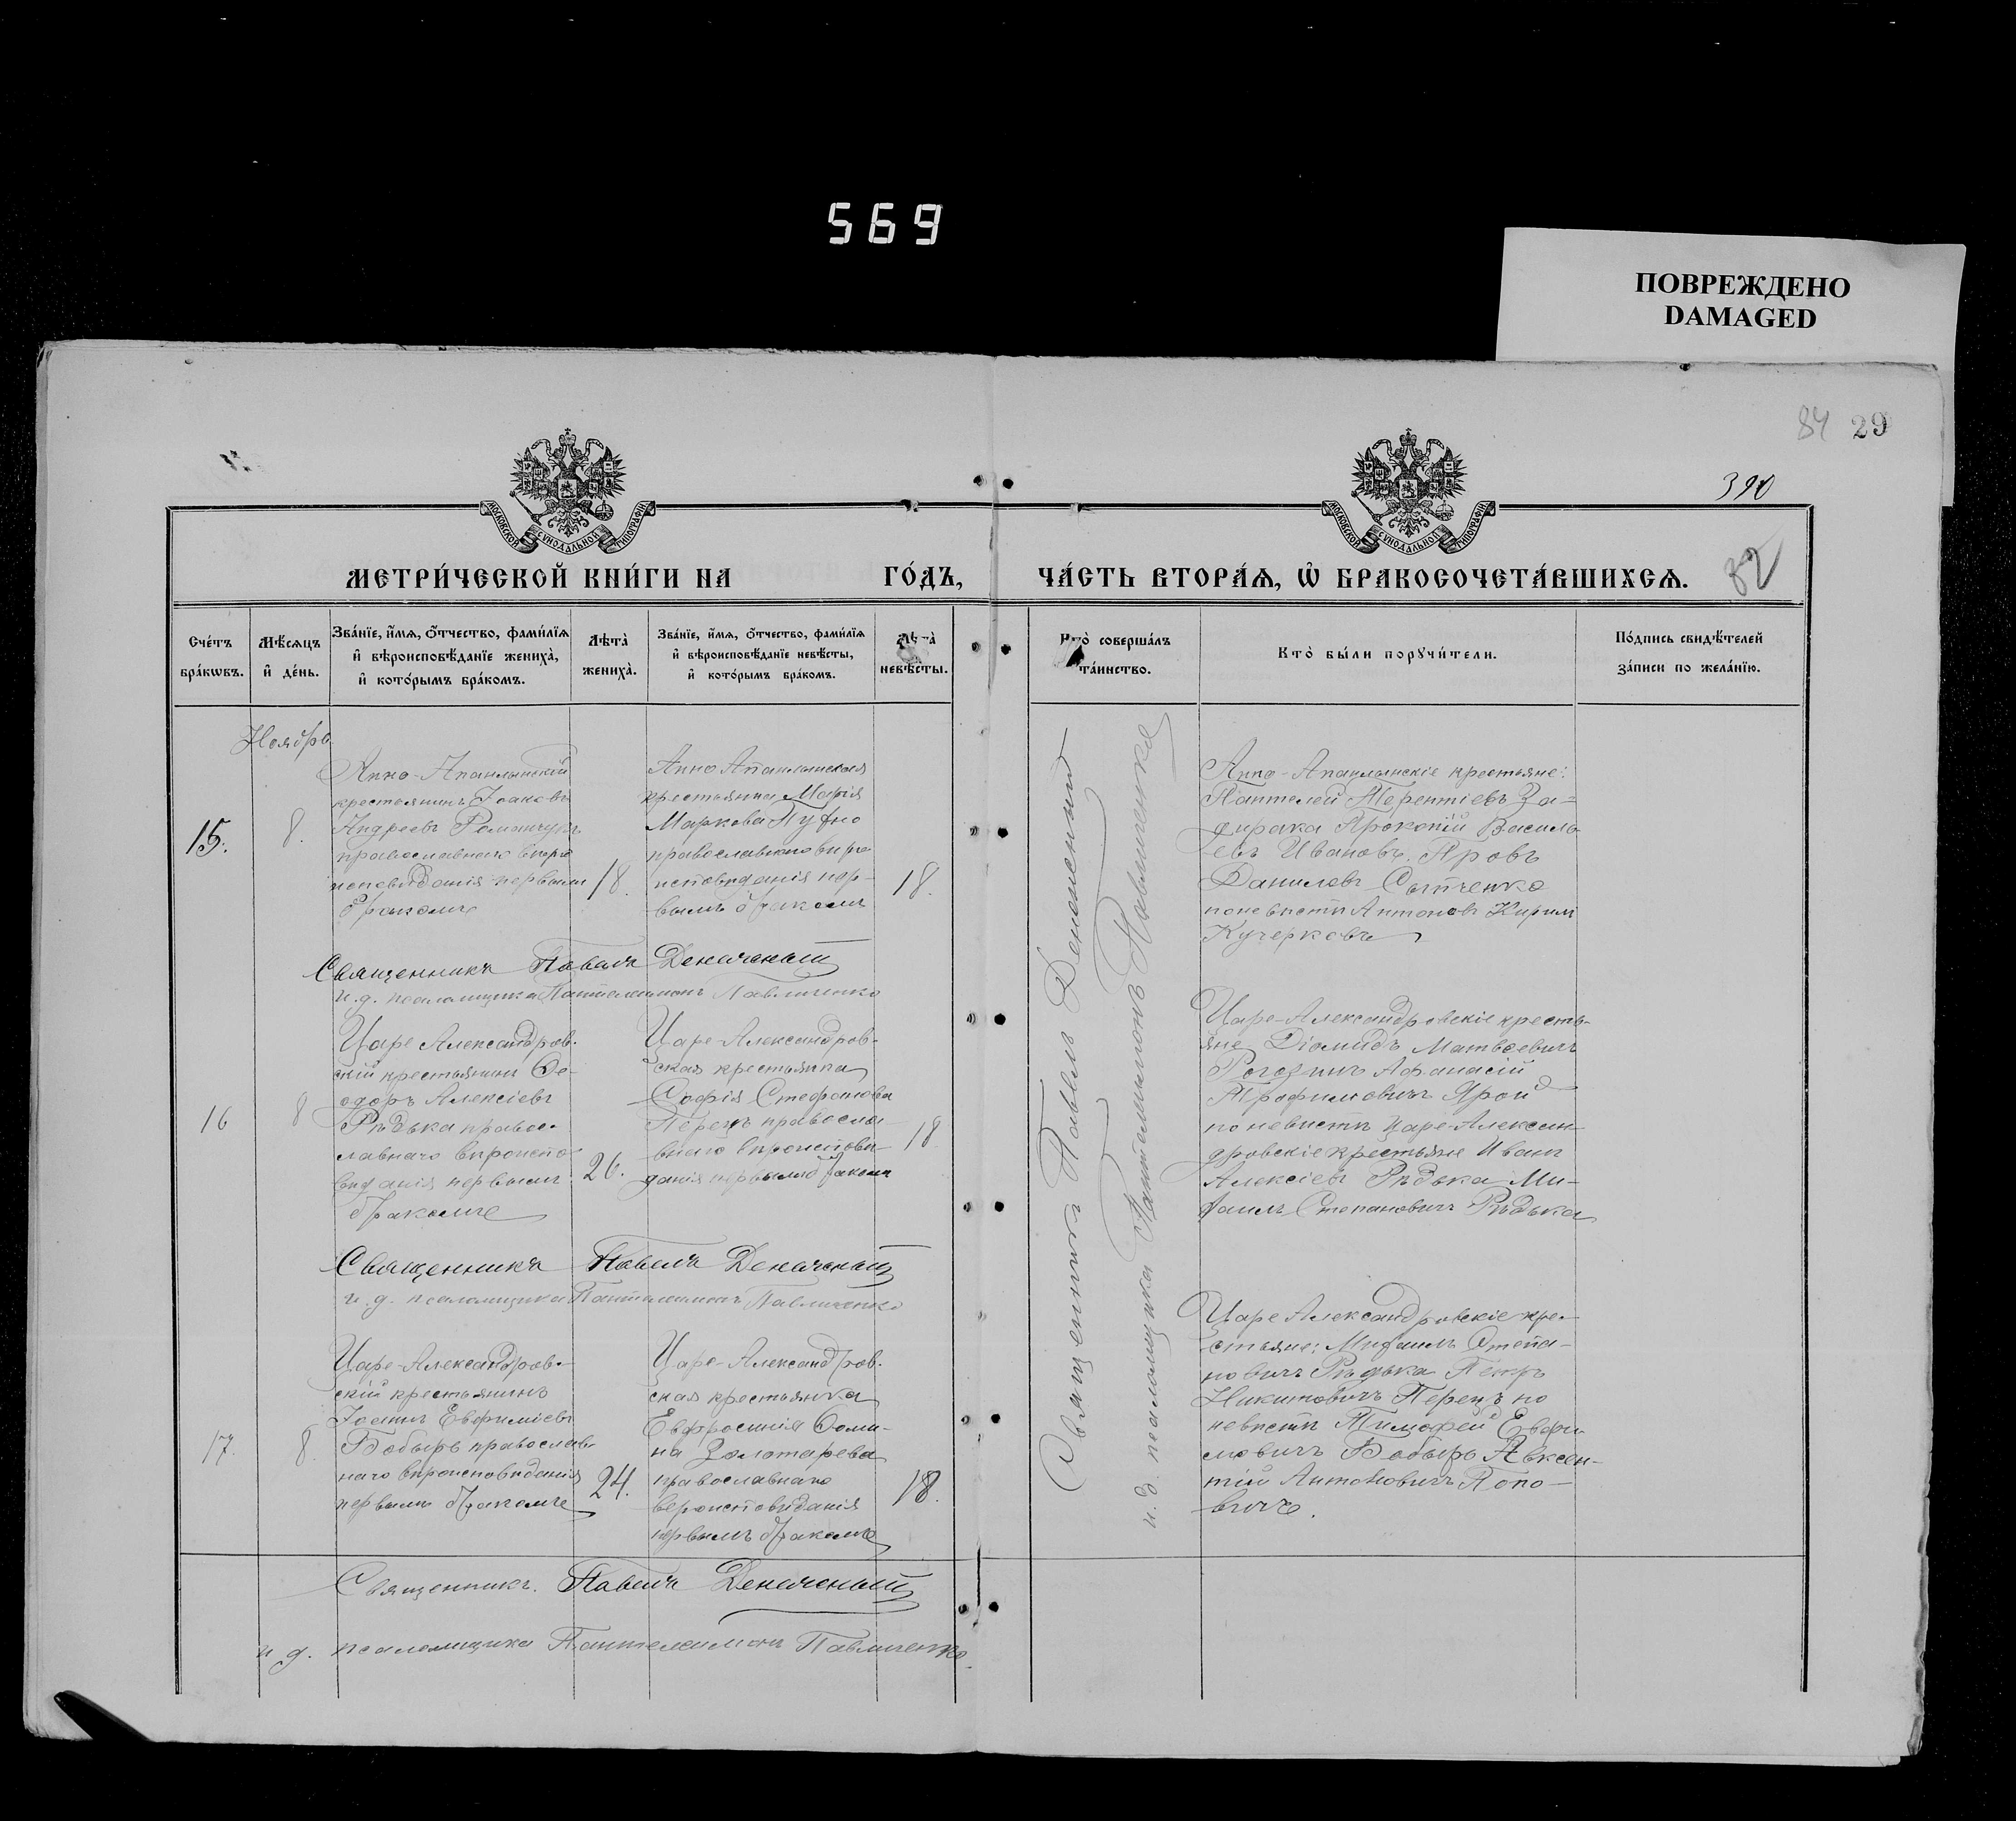 569
ПОВРЕЖДЕНО
DAMAGED
84 29
390
82
МОСКОВСКОЙ СѴНОДАЛЬНОЙ ТИПОГРАФІИ
МОСКОВСКОЙ СѴНОДАЛЬНОЙ ТИПОГРАФІИ
МЕТРИ́ЧЕСКОЙ КНИ́ГИ НА ГО́ДЪ,
ЧА́СТЬ ВТОРА́Ѧ, Ѡ҆ БРАКОСОЧЕТА́ВШИХСѦ.
Сче́тъ
бра́кѡвъ.
Мѣ́сѧцъ
и҆ де́нь.
Зва́нїе, и҆́мѧ, ѻ҆́тчество, фами́лїѧ
и҆ вѣроисповѣ́данїе жениха̀,
и҆ кото́рымъ бра́комъ.
Лѣта̀
жениха̀.
Зва́нїе, и҆́мѧ, ѻ҆́тчество, фами́лїѧ
и҆ вѣроисповѣ́данїе невѣ́сты,
и҆ кото́рымъ бра́комъ.
Лѣта̀
невѣ́сты.
Кто̀ соверша́лъ
та́инство.
Кто̀ бы́ли порꙋчи́тели.
По́дпись свидѣ́телей
за́писи по жела́нїю.
Ноябрь
15.
8.
Анно-Апанлынскій
крестьянинъ Іоаковъ
Андреевъ Романчукъ
православнаго вѣро
исповѣданія первымъ
бракомъ
18.
Анно Апанлынская
крестьянка Марія
Маркова
православнаго вѣро
исповѣданія пер-
вымъ бракомъ
18.
Анно-Апанлынскіе крестьяне:
Пантелей Терентіевъ За-
Прокопій Василь
евъ Ивановъ. Провъ
Даниловъ Сытченко
по невѣстѣ Антоновъ Кирилъ
Кучерковъ
Священникъ Павелъ
и.д. псаломщика Пантелеимонъ Павличенко
16
8
Царе Александров-
скій крестьянинъ Ѳе-
одоръ Алексіевъ
Рѣдька правос-
лавнаго вѣроиспо
вѣданія первымъ
бракомъ
26.
Царе-Александров-
ская крестьянка
Софія Стефанова
Перецъ правосла
внаго вѣроисповѣ-
данія первымъ бракомъ
18
Царе-Александровскіе кресть-
яне Діомидъ Матвѣевичъ
Рогозинъ Афанасій
Трофимовичъ Ярой
по невѣстѣ Царе-Алексан-
дровскіе крестьяне Иванъ
Алексіевъ Рѣдька Ми-
хаилъ Степановичъ Рѣдька
Священникъ Павелъ
и.д. псаломщика Пантелеимонъ Павличенко
17.
8.
Царе-Александров-
скій крестьянинъ
Іоаннъ Евфиміевъ
Бобырь православ-
наго вѣроисповѣданія
первымъ бракомъ
24.
Царе-Александров-
ская крестьянка
Евфросинія Ѳоми-
на Золотарева
православнаго
вѣроисповѣданія
первымъ бракомъ
18.
Царе Александровскіе кре-
стьяне: Михаилъ Степа-
новичъ Рѣдька Петръ
Никитовичъ Перецъ по
невѣстѣ Тимофей Евфи
мовичъ Бобырь Авксен-
тій Антоновичъ Попо-
вичъ.
Священникъ. Павелъ
и д. псаломщика Пантелеимонъ Павличенко.
Священникъ Павелъ
и.д. псаломщика Пантелеимонъ Павличенко